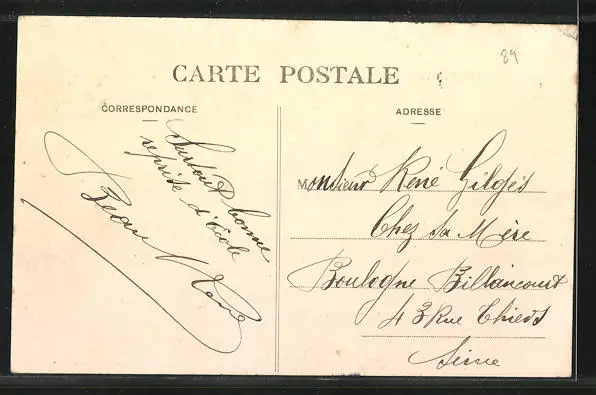 89
CARTE POSTALE
CORRESPONDANCE
ADRESSE
Surtout bonne
reprise d'école
René
Monsieur René Gilgès
Chez sa Mère
Boulogne Billancourt
43 Rue Thiers
Seine